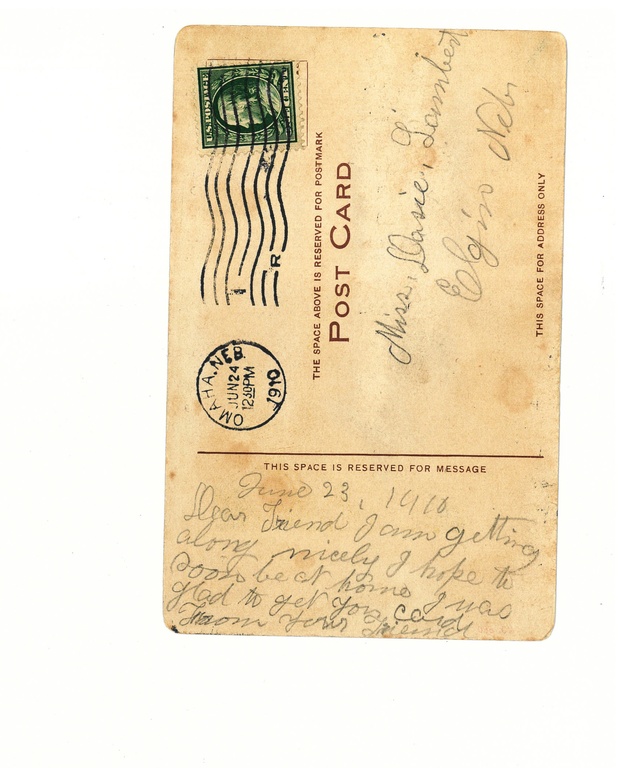 U.S. POSTAGE
OMAHA, NEB.
JUN 24
12 30 PM
1910
T
R
THE SPACE ABOVE IS RESERVED FOR POSTMARK
POST CARD
Miss. Lambert
Elgin Nebr
THIS SPACE FOR ADDRESS ONLY
THIS SPACE IS RESERVED FOR MESSAGE
June 23, 1910
Dear Friend I am getting
along nicely I hope to
soon be at home I was
glad to get your card
From your Friend